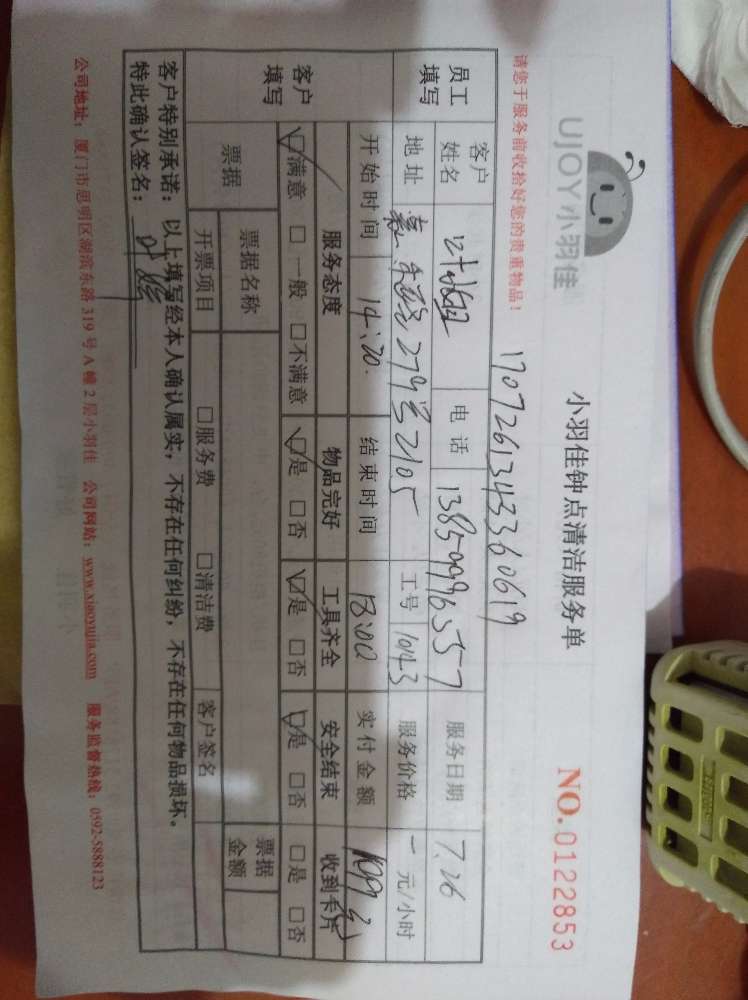 UJOY小羽佳
小羽佳钟点清洁服务单
NO.0122853
请您于服务前收拾好您的贵重物品！
17072613433360619
员工填写
客户姓名 小姐 电话 13859996557 服务日期 7.26
地址 279号2105 工号 1043 服务价格 一 元/小时
开始时间 14:20 结束时间 18:00 实付金额
客户填写
服务态度 物品完好 工具齐全 安全结束 收到卡片
☑满意 □一般 □不满意 ☑是 □否 ☑是 □否 ☑是 □否 □是 □否
票据 票据名称 票据金额
开票项目 □服务费 □清洁费 客户签名
客户特别承诺：以上填写经本人确认属实，不存在任何纠纷，不存在任何物品损坏。
特此确认签名：
公司地址：厦门市思明区湖滨东路319号A幢2层小羽佳 公司网站：www.xiaoyujia.com 服务监督热线：0592-5888123